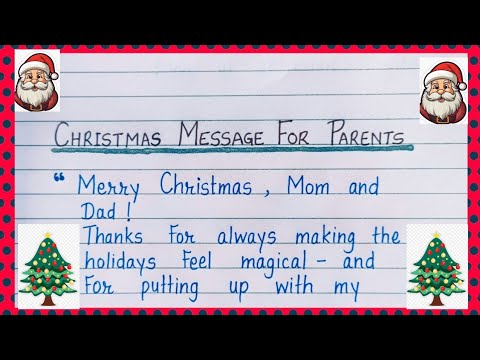 CHRISTMAS MESSAGE FOR PARENTS
“ Merry Christmas , Mom and
Dad !
Thanks For always making the
holidays Feel magical - and
For putting up with my